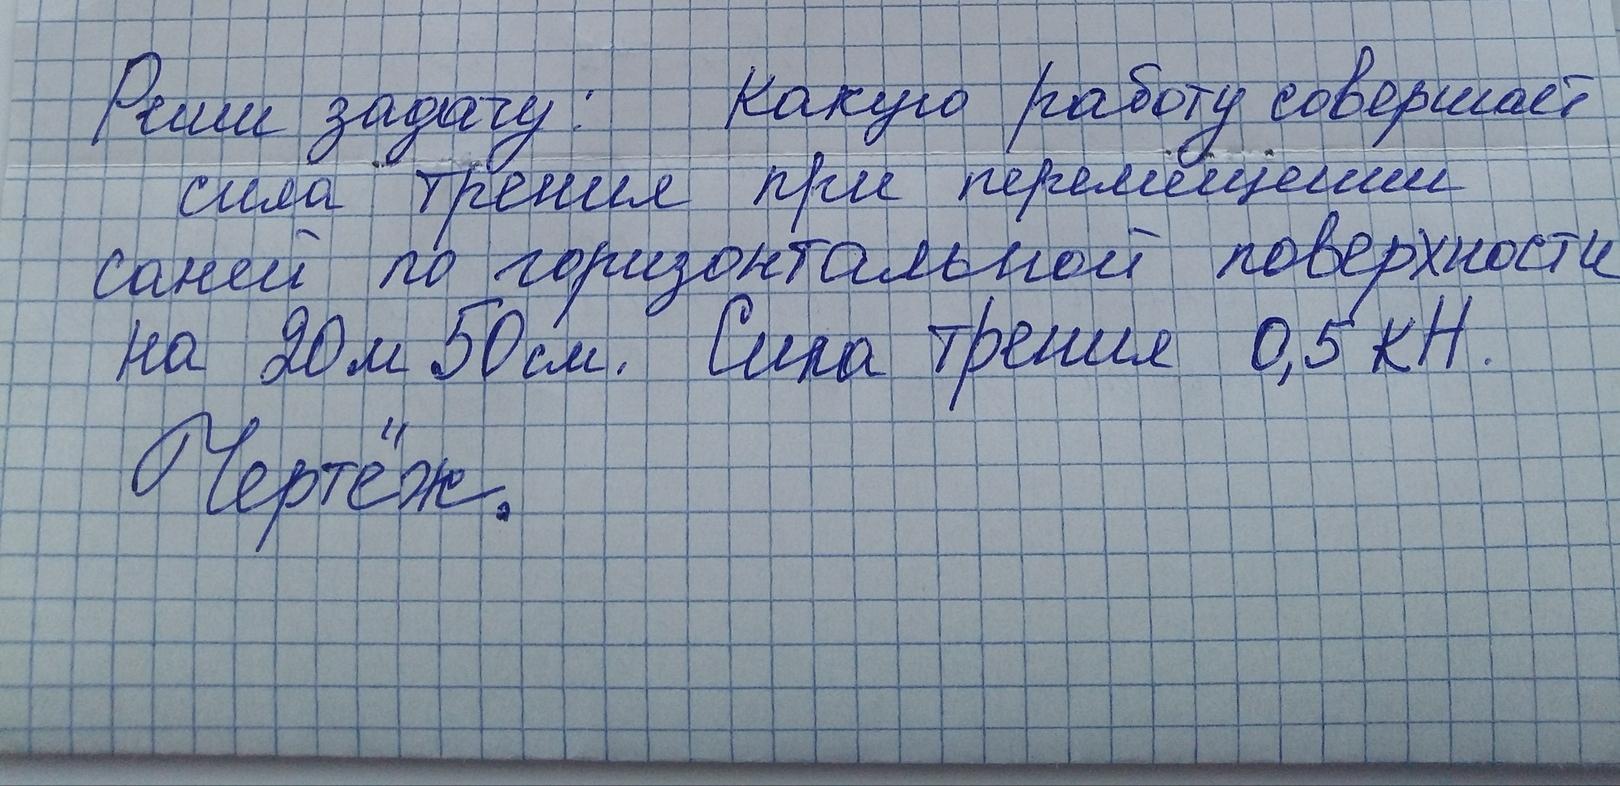 Реши задачу: Какую работу совершает
сила трения при перемещении
саней по горизонтальной поверхности
на 20м 50см. Сила трения 0,5 кН.
Чертёж.